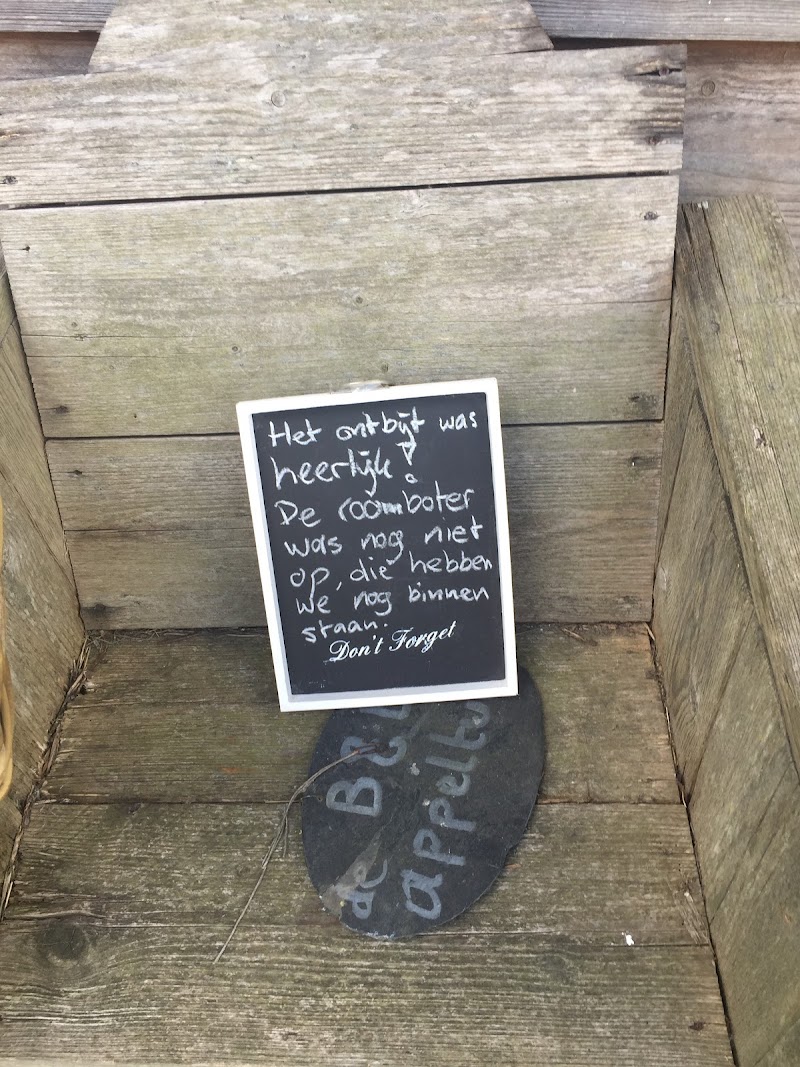 Het ontbijt was
heerlijk!
De roomboter
was nog niet
op, die hebben
we nog binnen
staan.
Don't Forget
de
appeltu